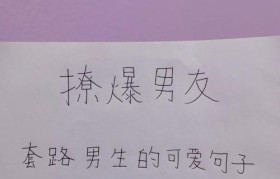 撩爆男友
套路男生的可爱句子